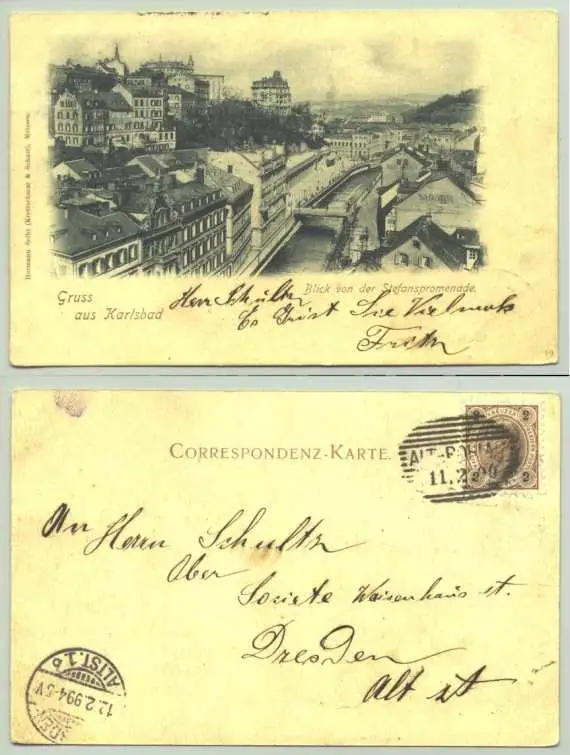 Hermann Seibt (Kretzschmar & Schatz), Meissen.
Gruss
aus Karlsbad
Blick von der Stefanspromenade.
Herr Schultz
Es Grüst Sie Vielmals
19
CORRESPONDENZ-KARTE.
2 KREUZER 2
2 2
ALT-ROHLAU
11.2.99
An Herrn Schultz
Ober
Societe Waisenhaus st.
Dresden
Alt st
DRESDEN
ALTST. 1. b
12.2.99.4-5V